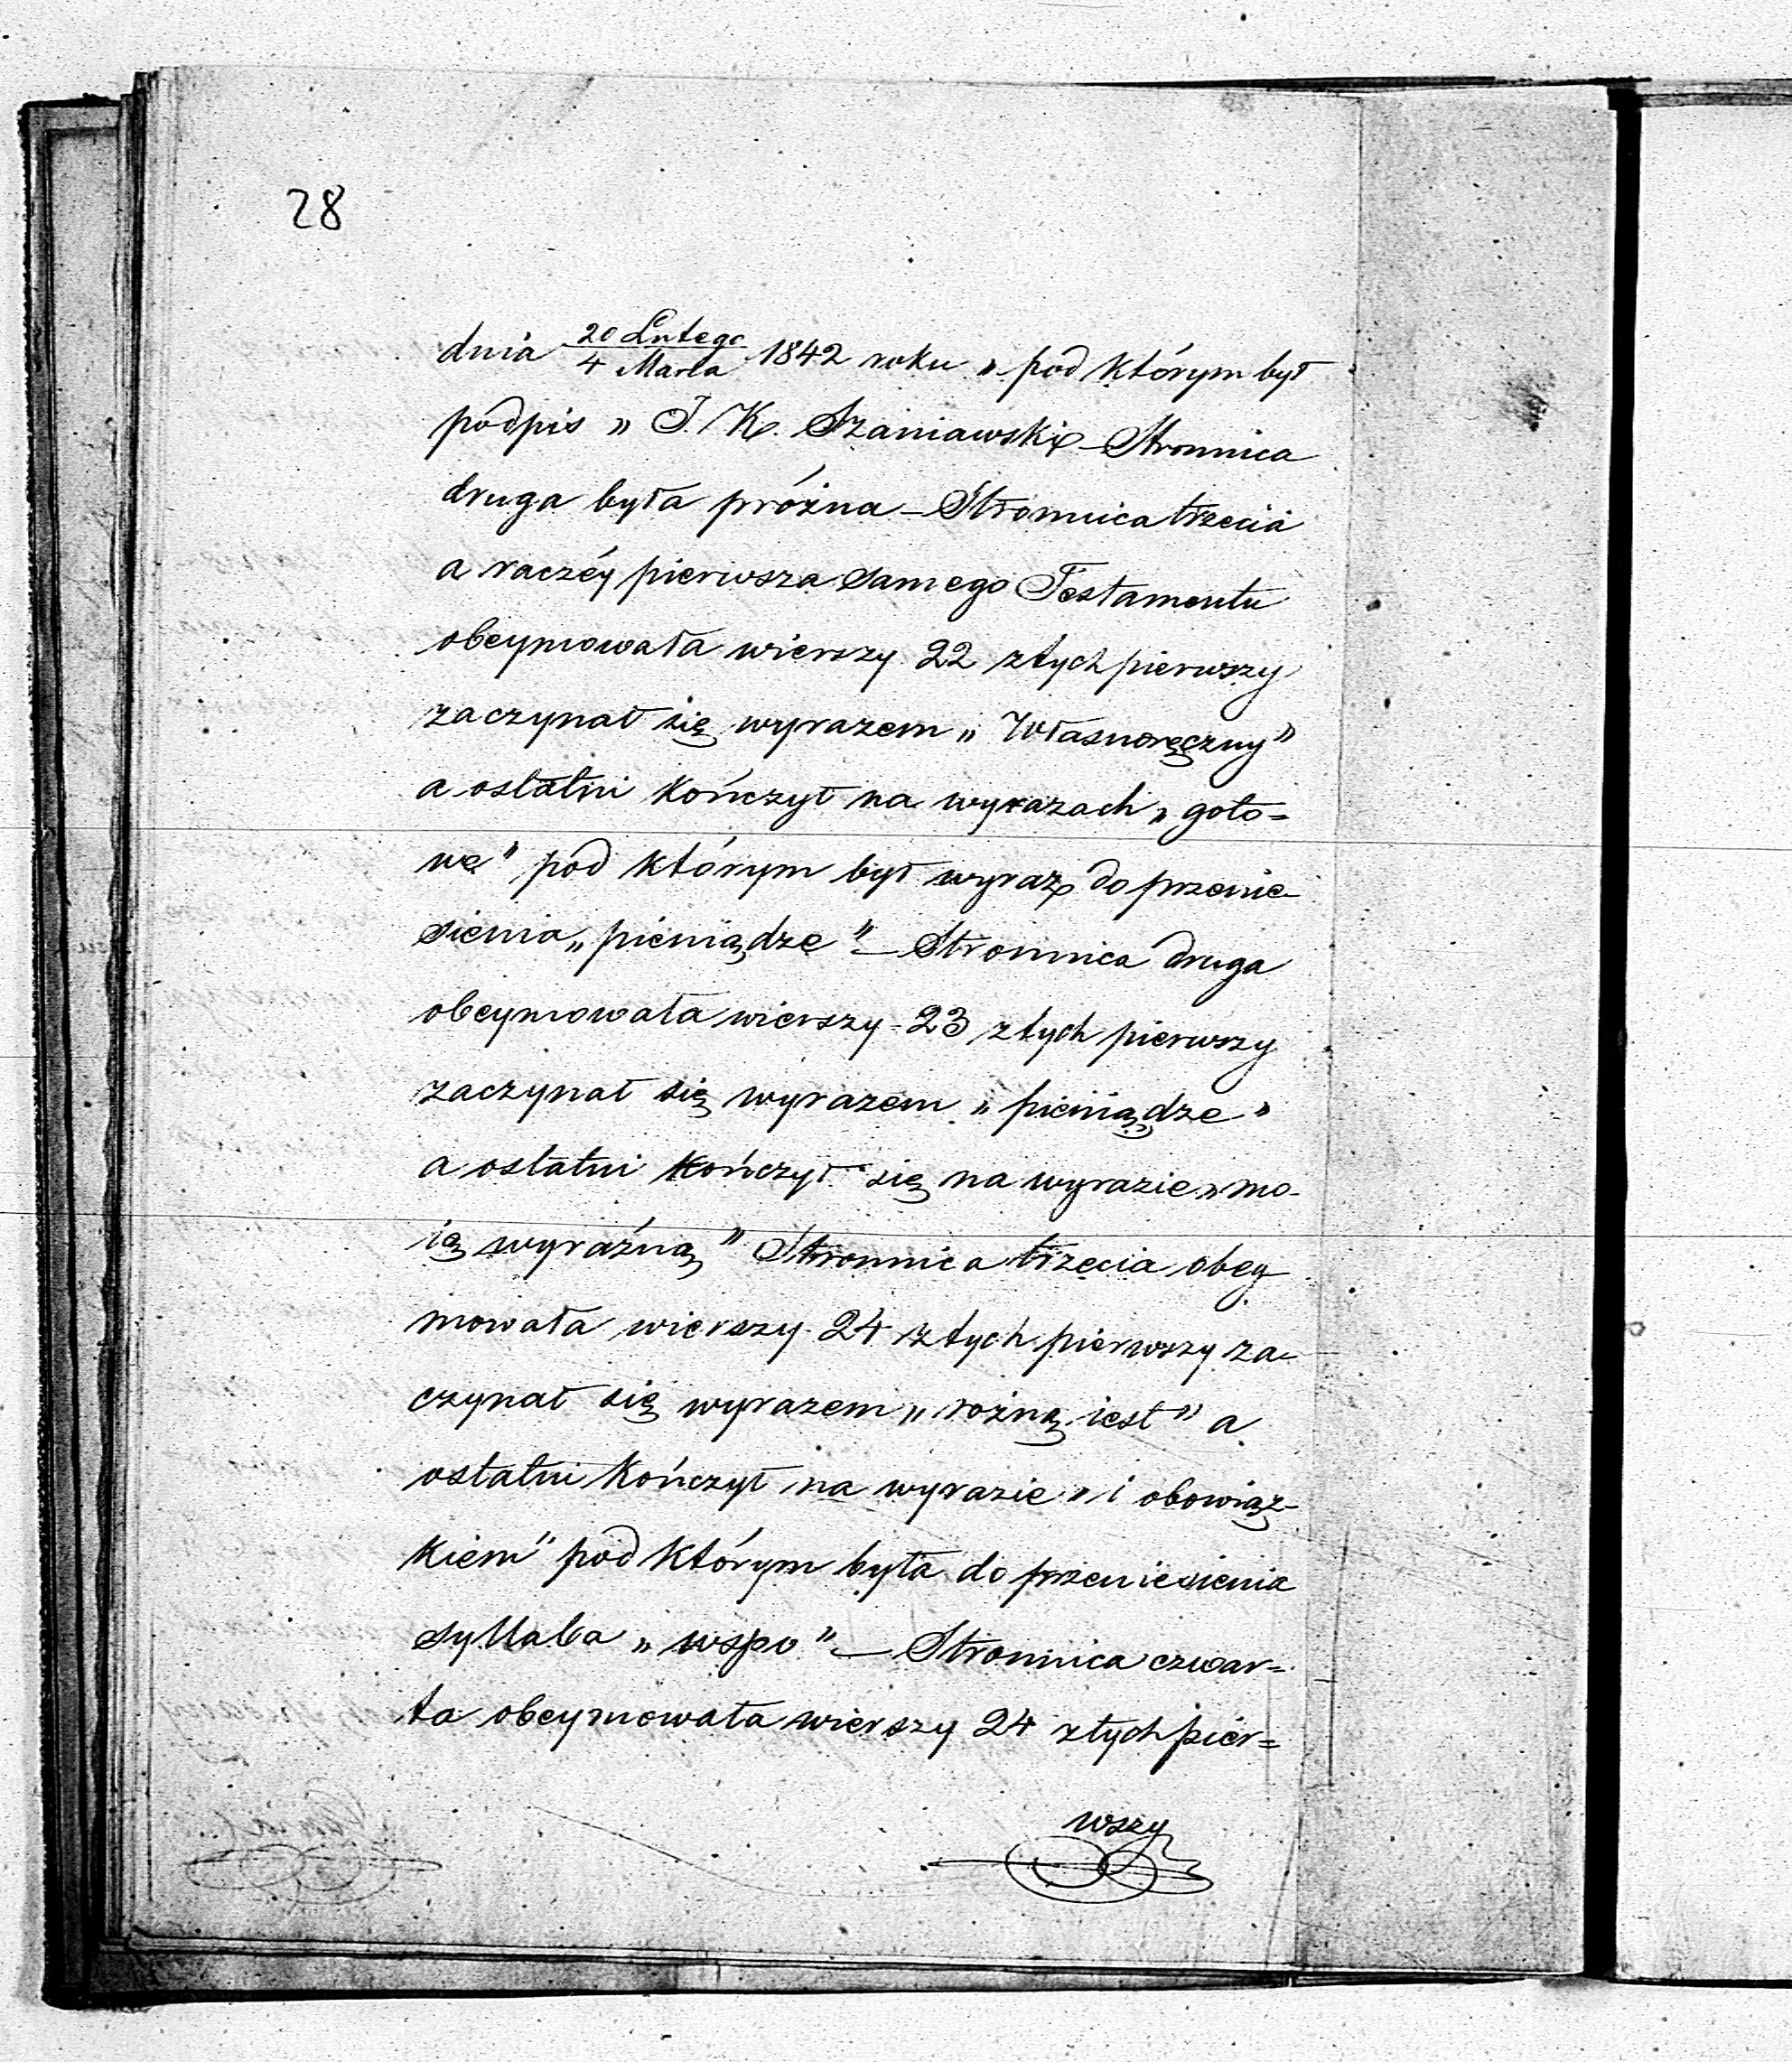 28
dnia 20 Lutego 1842 roku „ pod którym był
4 Marca
podpis „ J. K. Szaniawski – Stronnica
druga była próżna – Stronnica trzecia
a raczéy pierwsza samego Testamentu
obeymowała wierszy 22 z tych pierwszy
zaczynał się wyrazem „ Własnoręczny ”
a ostatni kończył na wyrazach „ goto=
we ” pod którym był wyraz do przenie-
sienia „ pieniądze ” – Stronnica druga
obeymowała wierszy 23 z tych pierwszy
zaczynał się wyrazem „ pieniądze ”
a ostatni kończył się na wyrazie „ mo-
ią wyraźną ” Stronnica trzecia obey
mowała wierszy 24 z tych pierwszy za-
czynał się wyrazem „ rożną iest ” a
ostatni kończył na wyrazie „ i obowiąz-
kiem ” pod którym była do przeniesienia
syllaba „ wspo ” – Stronnica czwar=
ta obeymowała wierszy 24 z tych pier=
wszy